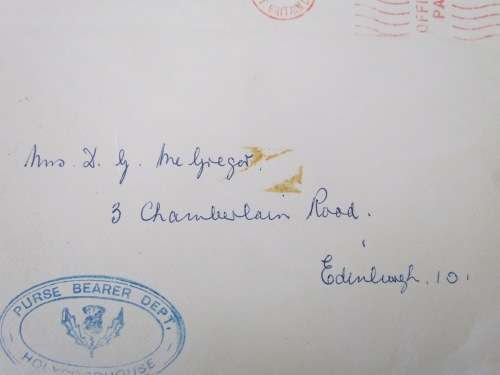 BRITAIN
OFFI
PA
Mrs. D. G. Mc Gregor.
3 Chamberlain Road.
Edinburgh. 10.
PURSE BEARER DEPT.
HOLYROODHOUSE